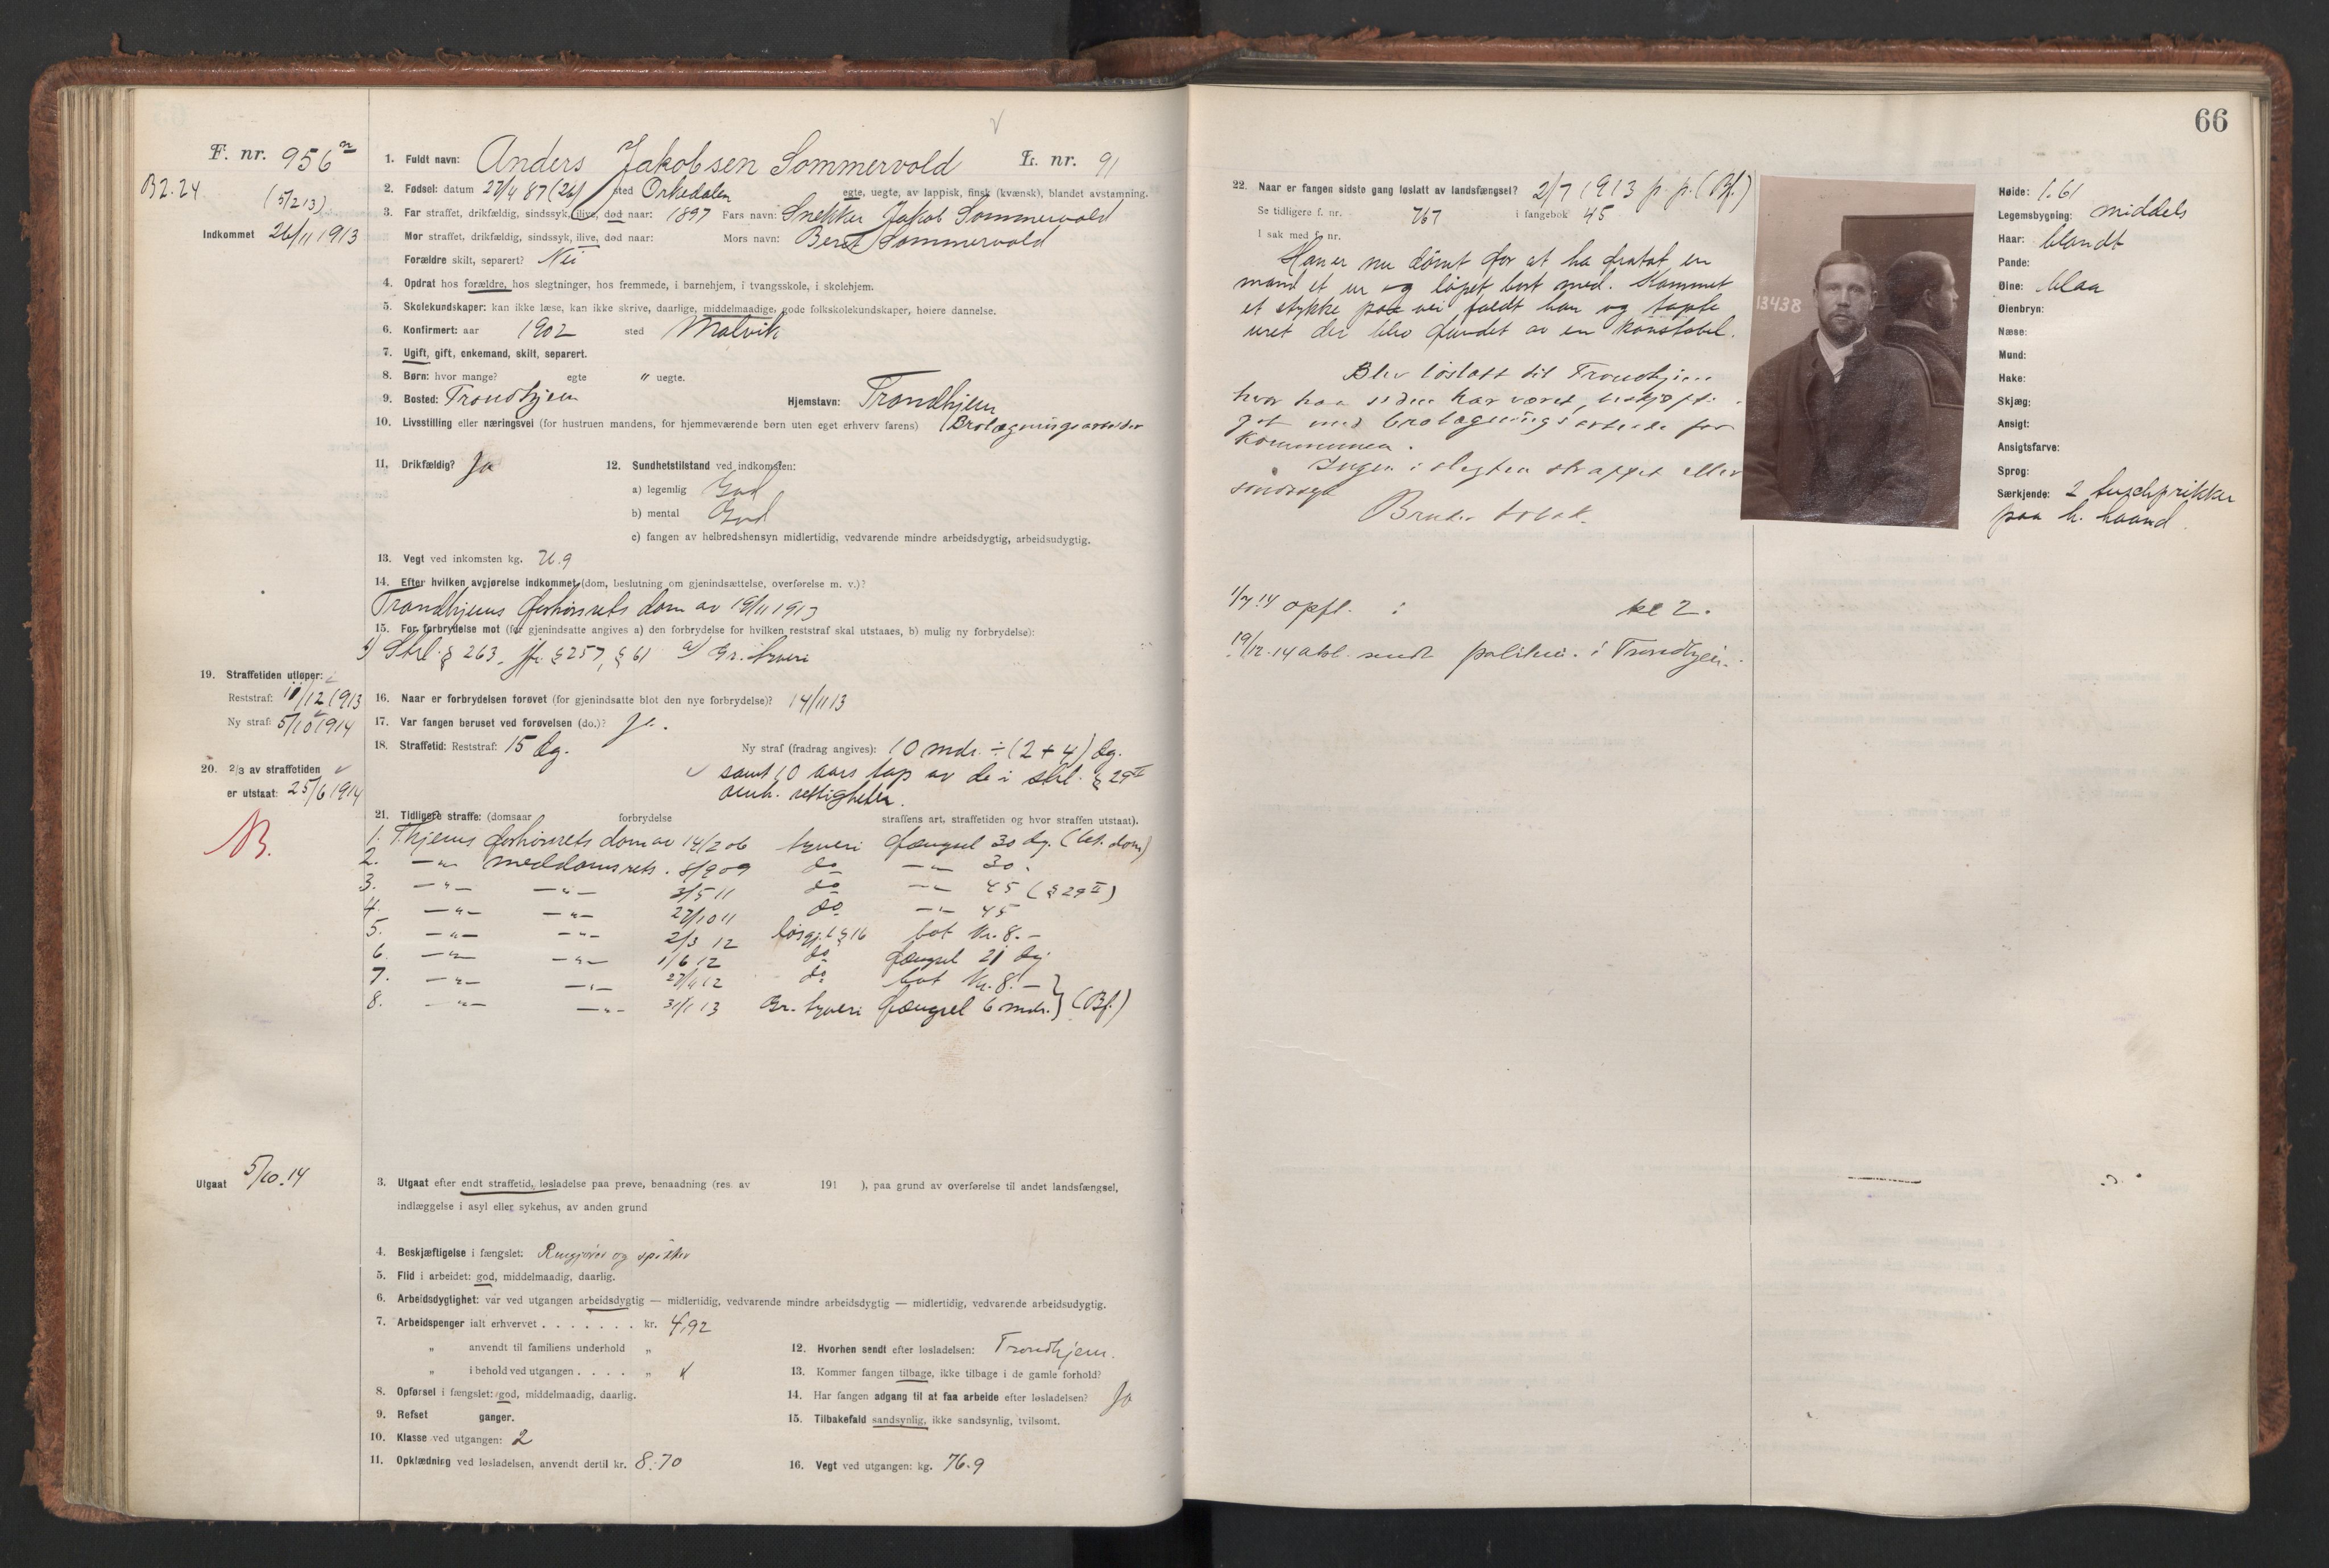 66
F. nr. 956
B2.24
(5/2 13)
Indkommet 26/11 1913
1. Fuldt navn: Anders Jakobsen Sommervold L. nr. 91
2. Fødsel: datum 27/4 87 (26) sted Orkedalen egte, uegte, av lappisk, finsk (kvænsk), blandet avstamning.
3. Far straffet, drikfældig, sindssyk, ilive, død naar: 1897 Fars navn: Snekker Jakob Sommervold
Mor straffet, drikfældig, sindssyk, ilive, død naar: Mors navn: Beret Sommervold
Forældre skilt, separert? Nei
4. Opdrat hos forældre, hos slegtninger, hos fremmede, i barnehjem, i tvangsskole, i skolehjem.
5. Skolekundskaper: kan ikke læse, kan ikke skrive, daarlige, middelmaadige, gode folkskolekundskaper, høiere dannelse.
6. Konfirmert: aar 1902 sted Malvik
7. Ugift, gift, enkemand, skilt, separert.
8. Børn: hvor mange? egte " uegte.
9. Bosted: Trondhjem Hjemstavn: Trondhjem
10. Livsstilling eller næringsvei (for hustruen mandens, for hjemmeværende børn uten eget erhverv farens) Brolægningsarbeider
11. Drikfældig? Ja 12. Sundhetstilstand ved indkomsten:
a) legemlig God
b) mental God
c) fangen av helbredshensyn midlertidig, vedvarende mindre arbeidsdygtig, arbeidsudygtig.
13. Vegt ved inkomsten kg. 76.9
14. Efter hvilken avgjørelse indkommet (dom, beslutning om gjenindsættelse, overførelse m. v.)?
Trondhjems forhørsrets dom av 19/11 1913
15. For forbrydelse mot (for gjenindsatte angives a) den forbrydelse for hvilken reststraf skal utstaaes, b) mulig ny forbrydelse):
b) Strl. § 263, jfr. § 257, § 61 a) Gr. tyveri
19. Straffetiden utløper:
Reststraf: 11/12 1913
Ny straf: 5/10 1914
16. Naar er forbrydelsen forøvet (for gjenindsatte blot den nye forbrydelse)? 14/11 13
17. Var fangen beruset ved forøvelsen (do.)? Ja.
18. Straffetid: Reststraf: 15 dg. Ny straf (fradrag angives): 10 mdr. ÷ (2 + 4) dg.
samt 10 aars tap av de i strl. § 29 II
omh. rettigheter.
20. 2/3 av straffetiden
er utstaat: 25/6 1914
21. Tidligere straffe: (domsaar forbrydelse straffens art, straffetiden og hvor straffen utstaat).
1. T.hjems forhørsrets dom av 14/2 06 tyveri fængsel 30 dg. (bet. dom)
2. —"— meddomsrets. 8/9 09 do —"— 30.
3. —"— —"— 3/5 11 do —"— 45 (§ 29 II)
4. —"— —"— 27/10 11 do —"— 45
5. —"— —"— 2/3 12 løsgj.l § 16 bot Kr. 8.–
6. —"— —"— 1/6 12 do fængsel 21 dg.
7. —"— —"— 27/4 12 do bot Kr. 8.–
8. —"— —"— 31/1 13 Gr. tyveri fængsel 6 mdr. (Bf.)
Utgaat 5/10.14
3. Utgaat efter endt straffetid, løsladelse paa prøve, benaadning (res. av 191 ), paa grund av overførelse til andet landsfængsel,
indlæggelse i asyl eller sykehus, av anden grund
4. Beskjæftigelse i fængslet: Rengjører og spikker
5. Flid i arbeidet: god, middelmaadig, daarlig.
6. Arbeidsdygtighet: var ved utgangen arbeidsdygtig — midlertidig, vedvarende mindre arbeidsdygtig — midlertidig, vedvarende arbeidsudygtig.
7. Arbeidspenger ialt erhvervet . . . . . . . kr. 4,92
" anvendt til familiens underhold "
" i behold ved utgangen . . . . "
8. Opførsel i fængslet: god, middelmaadig, daarlig.
9. Refset ganger.
10. Klasse ved utgangen: 2
11. Opklædning ved løsladelsen, anvendt dertil kr. 8.70
12. Hvorhen sendt efter løsladelsen: Trondhjem.
13. Kommer fangen tilbage, ikke tilbage i de gamle forhold?
14. Har fangen adgang til at faa arbeide efter løsladelsen? Ja
15. Tilbakefald sandsynlig, ikke sandsynlig, tvilsomt.
16. Vegt ved utgangen: kg. 76.9
22. Naar er fangen sidste gang løslatt av landsfængsel? 2/7 1913 p. p. (Bf.)
Se tidligere f. nr. 767 i fangebok 45
I sak med f. nr.
Han er nu dømt for at ha fratat en
mand et ur og løpet bort med. Kommet
et stykke paa vei faldt han og tapte
uret der blev fundet av en konstabel.
Blev løslatt til Trondhjem
hvor han siden har været, beskjæfti-
get med brolægningsarbeide for
kommunen.
Ingen i slegten straffet eller
sindssyk
Bruker tobak.
1/7 14 opfl. i kl 2.
19/12.14 abl. sendt politim. i Trondhjem.
13438
Høide: 1.61
Legemsbygning: middels
Haar: blondt
Pande:
Øine: blaa
Øienbryn:
Næse:
Mund:
Hake:
Skjæg:
Ansigt:
Ansigtsfarve:
Sprog:
Særkjende: 2 tuschprikker
paa h. haand.